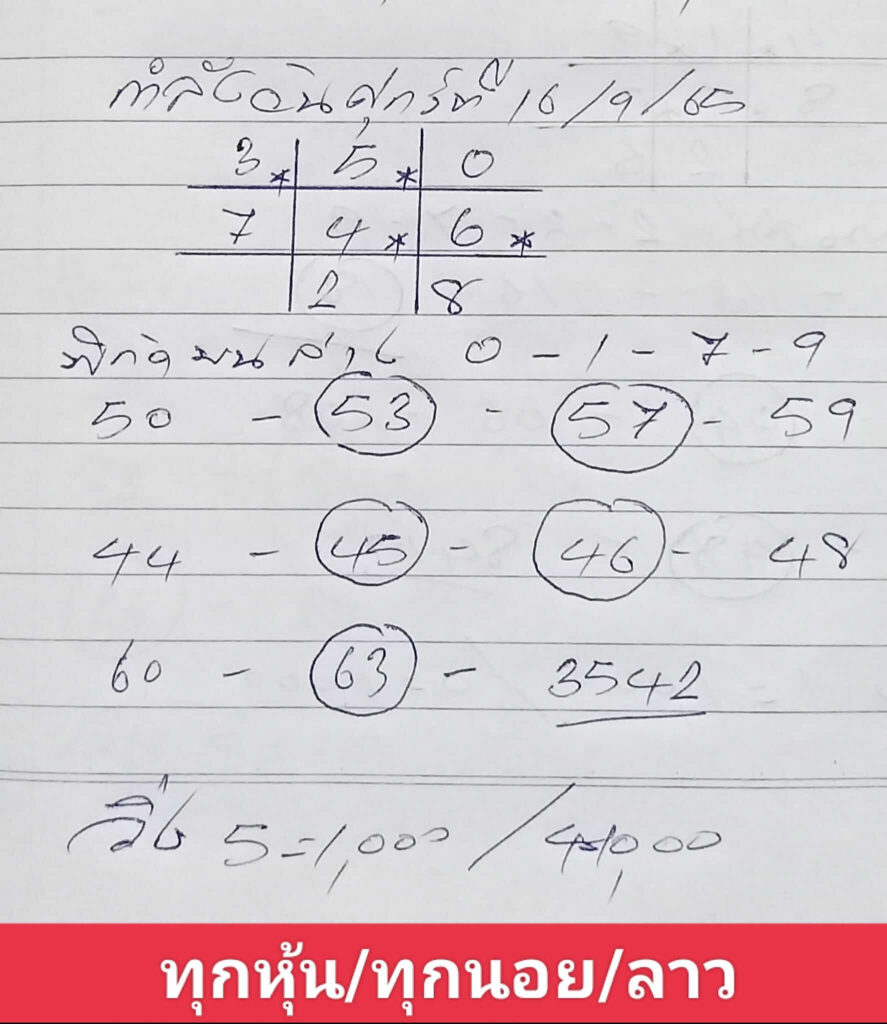 กำลังวันศุกร์ที่ 16/9/65
3* 5* 0
7 4* 6*
2 8
พิกัด บน ล่าง 0-1-7-9
50 - 53 - 57 - 59
44 - 45 - 46 - 48
60 - 63 - 3542
วิ่ง 5=1,000/4=1,000
ทุกหุ้น/ทุกนอย/ลาว